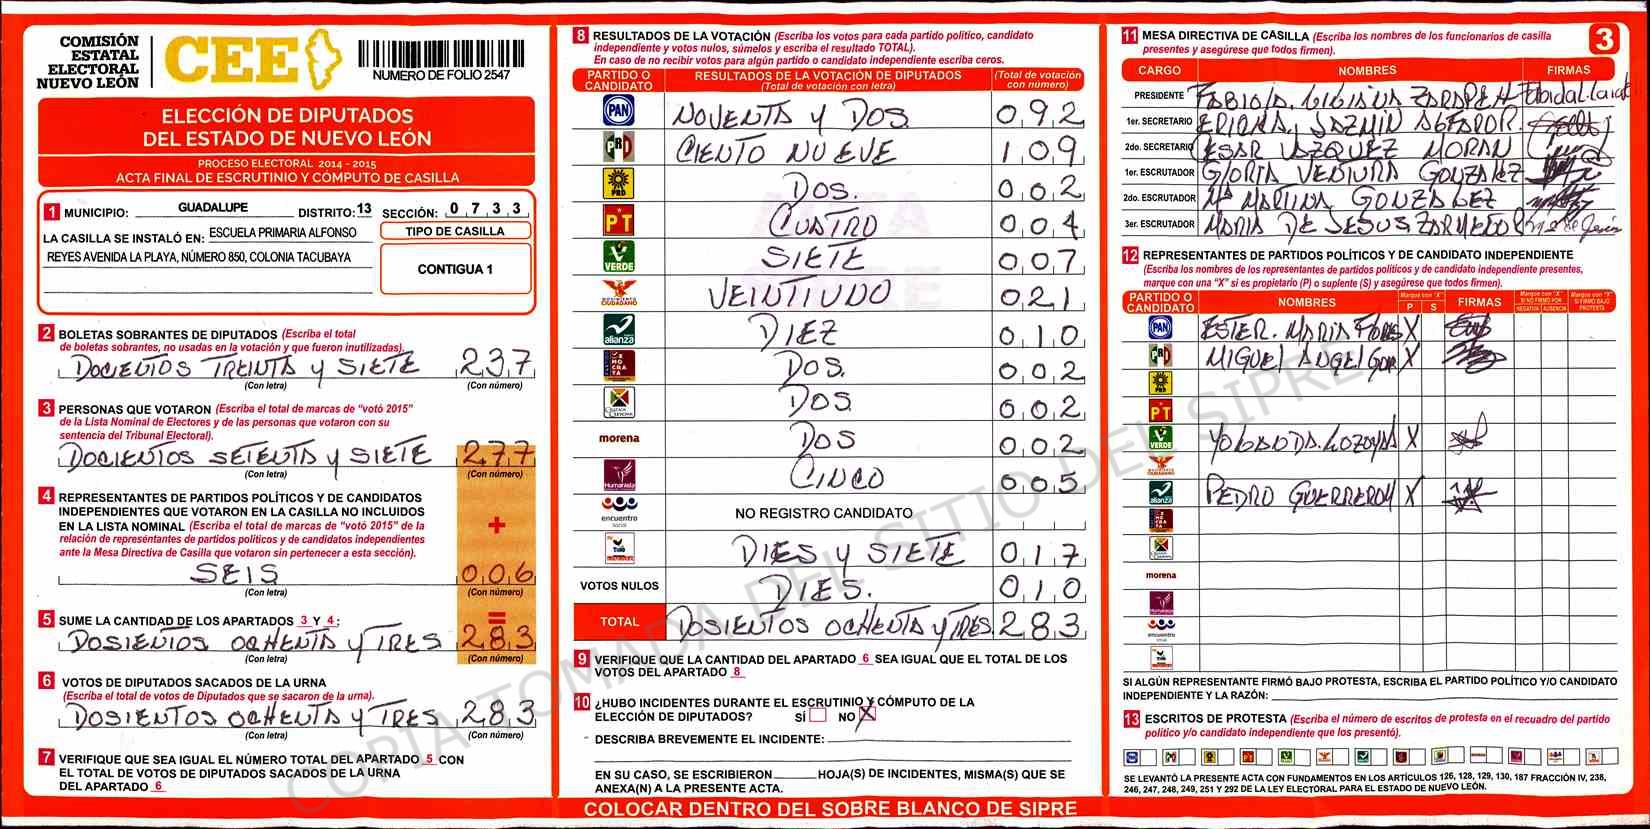 COMISIÓN
ESTATAL
ELECTORAL
NUEVO LEÓN
CEE
NUMERO DE FOLIO 2547
ELECCIÓN DE DIPUTADOS
DEL ESTADO DE NUEVO LEÓN
PROCESO ELECTORAL 2014 - 2015
ACTA FINAL DE ESCRUTINIO Y CÓMPUTO DE CASILLA
1 MUNICIPIO: GUADALUPE DISTRITO: 13 SECCIÓN: 0 7 3 3
LA CASILLA SE INSTALÓ EN: ESCUELA PRIMARIA ALFONSO
REYES AVENIDA LA PLAYA, NÚMERO 850, COLONIA TACUBAYA
TIPO DE CASILLA
CONTIGUA 1
2 BOLETAS SOBRANTES DE DIPUTADOS (Escriba el total
de boletas sobrantes, no usadas en la votación y que fueron inutilizadas).
DOCIENTOS TREINTA y SIETE 237
(Con letra) (Con número)
3 PERSONAS QUE VOTARON (Escriba el total de marcas de “votó 2015”
de la Lista Nominal de Electores y de las personas que votaron con su
sentencia del Tribunal Electoral).
DOCIENTOS SETENTA y SIETE 277
(Con letra) (Con número)
4 REPRESENTANTES DE PARTIDOS POLÍTICOS Y DE CANDIDATOS
INDEPENDIENTES QUE VOTARON EN LA CASILLA NO INCLUIDOS
EN LA LISTA NOMINAL (Escriba el total de marcas de “votó 2015” de la
relación de representantes de partidos políticos y de candidatos independientes
ante la Mesa Directiva de Casilla que votaron sin pertenecer a esta sección).
+
SEIS 006
(Con letra) (Con número)
=
5 SUME LA CANTIDAD DE LOS APARTADOS 3 Y 4:
DOSIENTOS OCHENTA y TRES 283
(Con letra) (Con número)
6 VOTOS DE DIPUTADOS SACADOS DE LA URNA
(Escriba el total de votos de Diputados que se sacaron de la urna).
DOSIENTOS OCHENTA y TRES 283
(Con letra) (Con número)
7 VERIFIQUE QUE SEA IGUAL EL NÚMERO TOTAL DEL APARTADO 5 CON
EL TOTAL DE VOTOS DE DIPUTADOS SACADOS DE LA URNA
DEL APARTADO 6
8 RESULTADOS DE LA VOTACIÓN (Escriba los votos para cada partido político, candidato
independiente y votos nulos, súmelos y escriba el resultado TOTAL).
En caso de no recibir votos para algún partido o candidato independiente escriba ceros.
PARTIDO O CANDIDATO RESULTADOS DE LA VOTACIÓN DE DIPUTADOS (Total de votación con letra) (Total de votación con número)
PAN NOVENTA y DOS 092
PRD CIENTO NUEVE 109
PRD DOS. 002
PT CUATRO 004
VERDE SIETE 007
MOVIMIENTO CIUDADANO VEINTIUNO 021
alianza DIEZ 010
DEMOCRATA DOS. 002
DOS 002
morena DOS 002
Humanista CINCO 005
encuentro social NO REGISTRO CANDIDATO
DIES y SIETE 017
VOTOS NULOS DIES. 010
TOTAL DOSIENTOS OCHENTA y TRES. 283
9 VERIFIQUE QUE LA CANTIDAD DEL APARTADO 6 SEA IGUAL QUE EL TOTAL DE LOS
VOTOS DEL APARTADO 8
10 ¿HUBO INCIDENTES DURANTE EL ESCRUTINIO Y CÓMPUTO DE LA
ELECCIÓN DE DIPUTADOS? SÍ NO X
DESCRIBA BREVEMENTE EL INCIDENTE:
EN SU CASO, SE ESCRIBIERON HOJA(S) DE INCIDENTES, MISMA(S) QUE SE
ANEXA(N) A LA PRESENTE ACTA.
COLOCAR DENTRO DEL SOBRE BLANCO DE SIPRE
11 MESA DIRECTIVA DE CASILLA (Escriba los nombres de los funcionarios de casilla
presentes y asegúrese que todos firmen).
3
CARGO NOMBRES FIRMAS
PRESIDENTE FABIOLA. LILIANA
1er. SECRETARIO ERICKA. JAZMIN
2do. SECRETARIO CESAR VAZQUEZ MORAN
1er. ESCRUTADOR GLORIA VENTURA GONZALEZ
2do. ESCRUTADOR Ma MARTINA GONZALEZ
3er. ESCRUTADOR MARIA DE JESUS
12 REPRESENTANTES DE PARTIDOS POLÍTICOS Y DE CANDIDATO INDEPENDIENTE
(Escriba los nombres de los representantes de partidos políticos y de candidato independiente presentes,
marque con una “X” si es propietario (P) o suplente (S) y asegúrese que todos firmen).
PARTIDO O CANDIDATO NOMBRES Marque con "X" P S FIRMAS Marque con "X" SI NO FIRMÓ POR NEGATIVA AUSENCIA Marque con "X" SI FIRMÓ BAJO PROTESTA
PAN ESTER. MARIA X
PRD MIGUEL ANGEL X
PRD
PT
VERDE X
alianza PEDRO GUERRERO X
morena
encuentro social
SI ALGÚN REPRESENTANTE FIRMÓ BAJO PROTESTA, ESCRIBA EL PARTIDO POLÍTICO Y/O CANDIDATO
INDEPENDIENTE Y LA RAZÓN:
13 ESCRITOS DE PROTESTA (Escriba el número de escritos de protesta en el recuadro del partido
político y/o candidato independiente que los presentó).
SE LEVANTÓ LA PRESENTE ACTA CON FUNDAMENTOS EN LOS ARTÍCULOS 126, 128, 129, 130, 187 FRACCIÓN IV, 238,
246, 247, 248, 249, 251 Y 292 DE LA LEY ELECTORAL PARA EL ESTADO DE NUEVO LEÓN.
COPIA TOMADA DEL SITIO DEL SIPRE